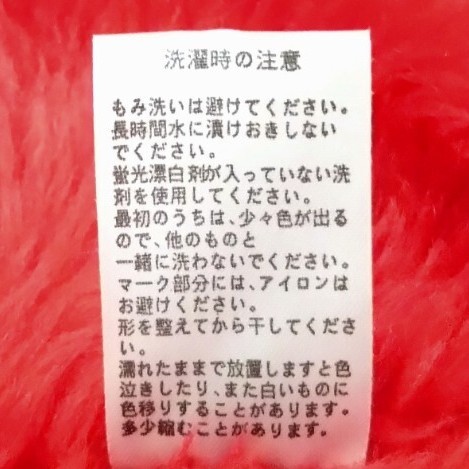 洗濯時の注意
もみ洗いは避けてください。
長時間水に漬けおきしない
でください。
蛍光漂白剤が入っていない洗
剤を使用してください。
最初のうちは、少々色が出る
ので、他のものと
一緒に洗わないでください。
マーク部分には、アイロンは
お避けください。
形を整えてから干してくださ
い。
濡れたままで放置しますと色
泣きしたり、また白いものに
色移りすることがあります。
多少縮むことがあります。